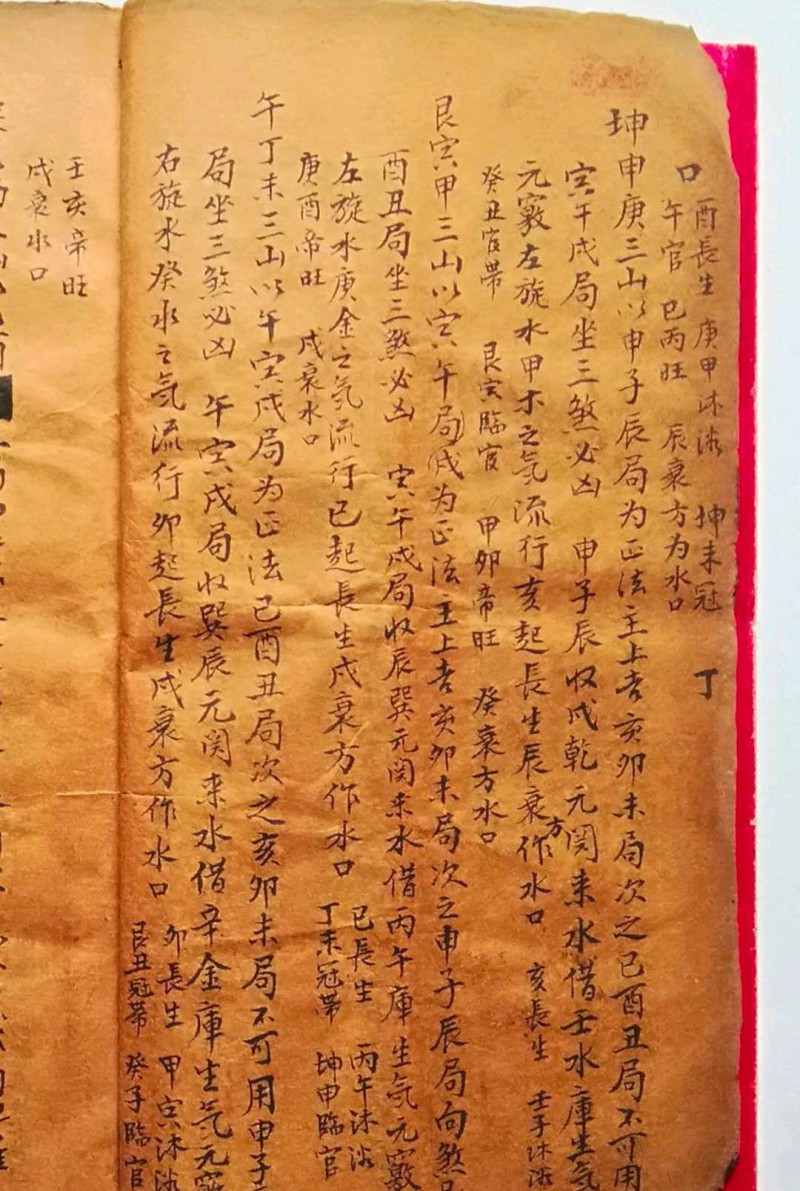 口 酉長生 庚申沐浴 坤未冠 丁
午官 巳丙旺 辰衰方为水口
坤申庚三山以申子辰局为正法主上吉亥卯未局次之巳酉丑局不可用
寅午戌局坐三煞必凶 申子辰收戌乾元関来水借壬水庫生气
元竅左旋水甲木之气流行亥起長生辰衰方作水口 亥長生 壬子沐浴
癸丑官帯 艮寅臨官 甲卯帝旺 癸衰方水口
艮寅甲三山以寅午局戌为正法主上吉亥卯未局次之申子辰局向煞
酉丑局坐三煞必凶 寅午戌局收辰巽元関来水借丙午庫生气元竅
左旋水庚金之气流行巳起長生戌衰方作水口 巳長生 丙午沐浴
庚酉帝旺 戌衰水口 丁未冠帯 坤申臨官
午丁未三山以午寅戌局为正法巳酉丑局次之亥卯未局不可用申子
局坐三煞必凶 午寅戌局收巽辰元関来水借辛金庫生气元竅
右旋水癸水之气流行卯起長生戌衰方作水口 卯長生 甲寅沐浴
艮丑冠帯 癸子臨官
壬亥帝旺
戌衰水口